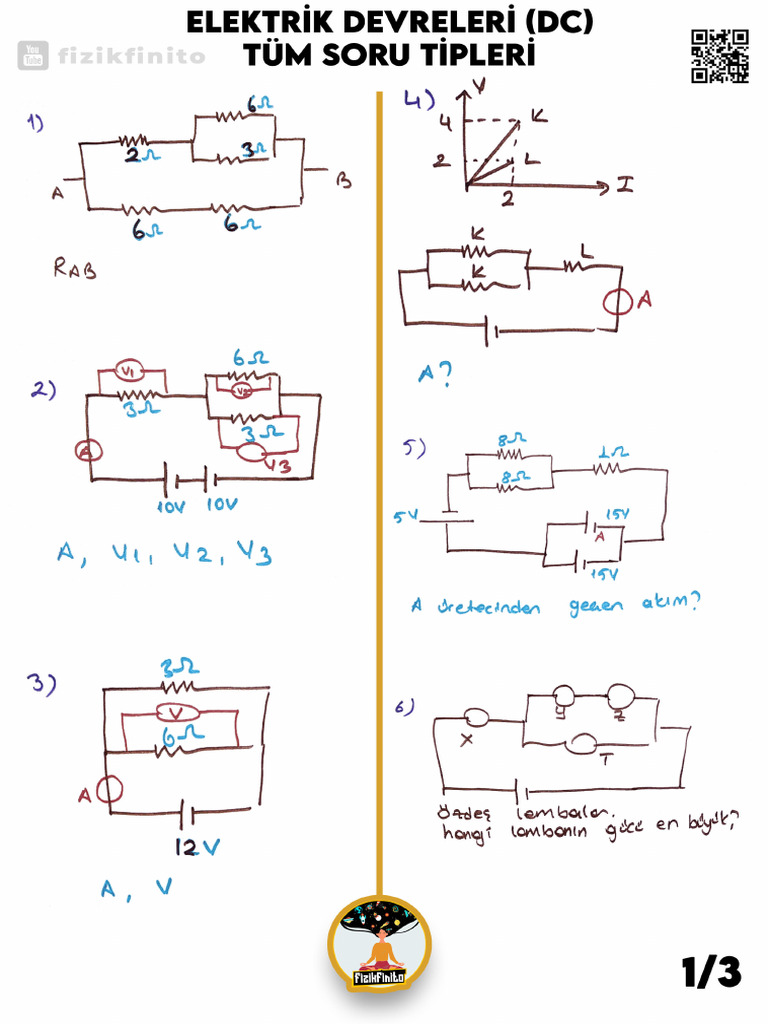 ELEKTRİK DEVRELERİ (DC)
TÜM SORU TİPLERİ
You
Tube
fizikfinito
1)
6Ω
2Ω
3Ω
A
B
6Ω
6Ω
RAB
2)
V1
3Ω
6Ω
V2
3Ω
V3
A
10V 10V
A, V1, V2, V3
3)
3Ω
V
6Ω
A
12V
A, V
4)
V
4
K
2
L
2
I
K
K
L
A
A?
5)
8Ω
8Ω
1Ω
5V
15V
A
15V
A üretecinden geçen akım?
6)
X
Y
Z
T
Özdeş lambalar.
hangi lambanın gücü en büyük?
fizikfinito
1/3